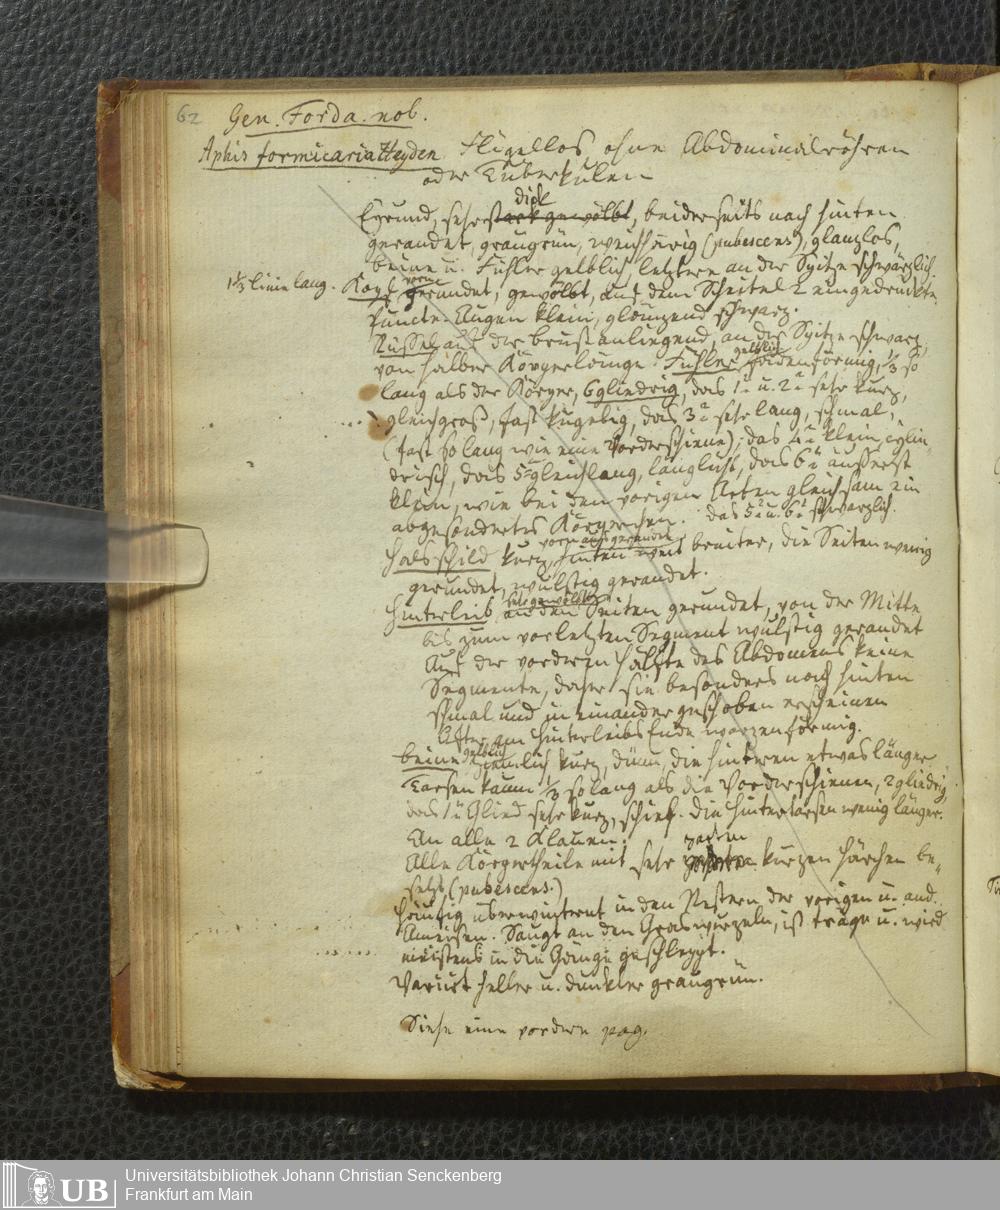 62 Gen. Forda. nob.
Aphis formicaria Heyden Flügellos ohne Abdominalröhren
oder Tuberkulen
dick
Eyrund, sehr stark gewölbt, beiderseits nach hinten
gerandet, graugrün, weichhärig (pubescens), glanzlos,
beine u. Fühler gelblich letztere an der Spitze schwärzlich.
1⅓ Linie lang. Kopf vorne gerundet, gewölbt, auf dem Scheitel 2 eingedrückte
Puncte. Augen klein, glänzend schwarz.
Rüssel auf der brust anliegend, an der Spitze schwarz,
von halber Körperlänge. Fühler gelblich fadenförmig, ⅓ so
lang als der Körper, 6gliedrig, das 1te u. 2te sehr kurz,
gleichgroß, fast kugelig, das 3te sehr lang, schmal,
(fast so lang wie eine Vorderschiene); das 4te klein, cylin
drisch, das 5te gleichlang, länglicht, das 6te äußerst
klein, wie bei den vorigen Arten gleichsam ein
abgesondertes Körperchen. das 5te u. 6te schwärzlich.
Halsschild kurz, vorn ausgerandet hinten weit breiter, die Seiten wenig
gerundet, wulstig gerandet.
Hinterleib sehr gewölbt an den Seiten gerundet, von der Mitte
bis zum vorletzten Segment wulstig gerandet
Auf der vorderen Hälfte des Abdomens keine
Segmente, daher sie besonders nach hinten
schmal und in einander geschoben erscheinen
After am Hinterleibs Ende warzenförmig.
beine gelblich ziemlich kurz, dünn, die hinteren etwas länger
Tarsen kaum ⅓ so lang als die Vorderschienen, 2gliedrig,
das 1te Glied sehr kurz, schief. Die Hintertarsen wenig länger.
An alle 2 Klauen.
Alle Körpertheile mit sehr zarten kurzen Härchen be-
setzt (pubescens.)
Häufig überwinternt in den Nestern der vorigen u. and.
Ameisen. Saugt an den Graswurzeln, ist träge u. wird
meistens in die Gänge geschleppt.
Variirt heller u. dunkler graugrün.
Siehe eine vordere pag.
Universitätsbibliothek Johann Christian Senckenberg
Frankfurt am Main
UB